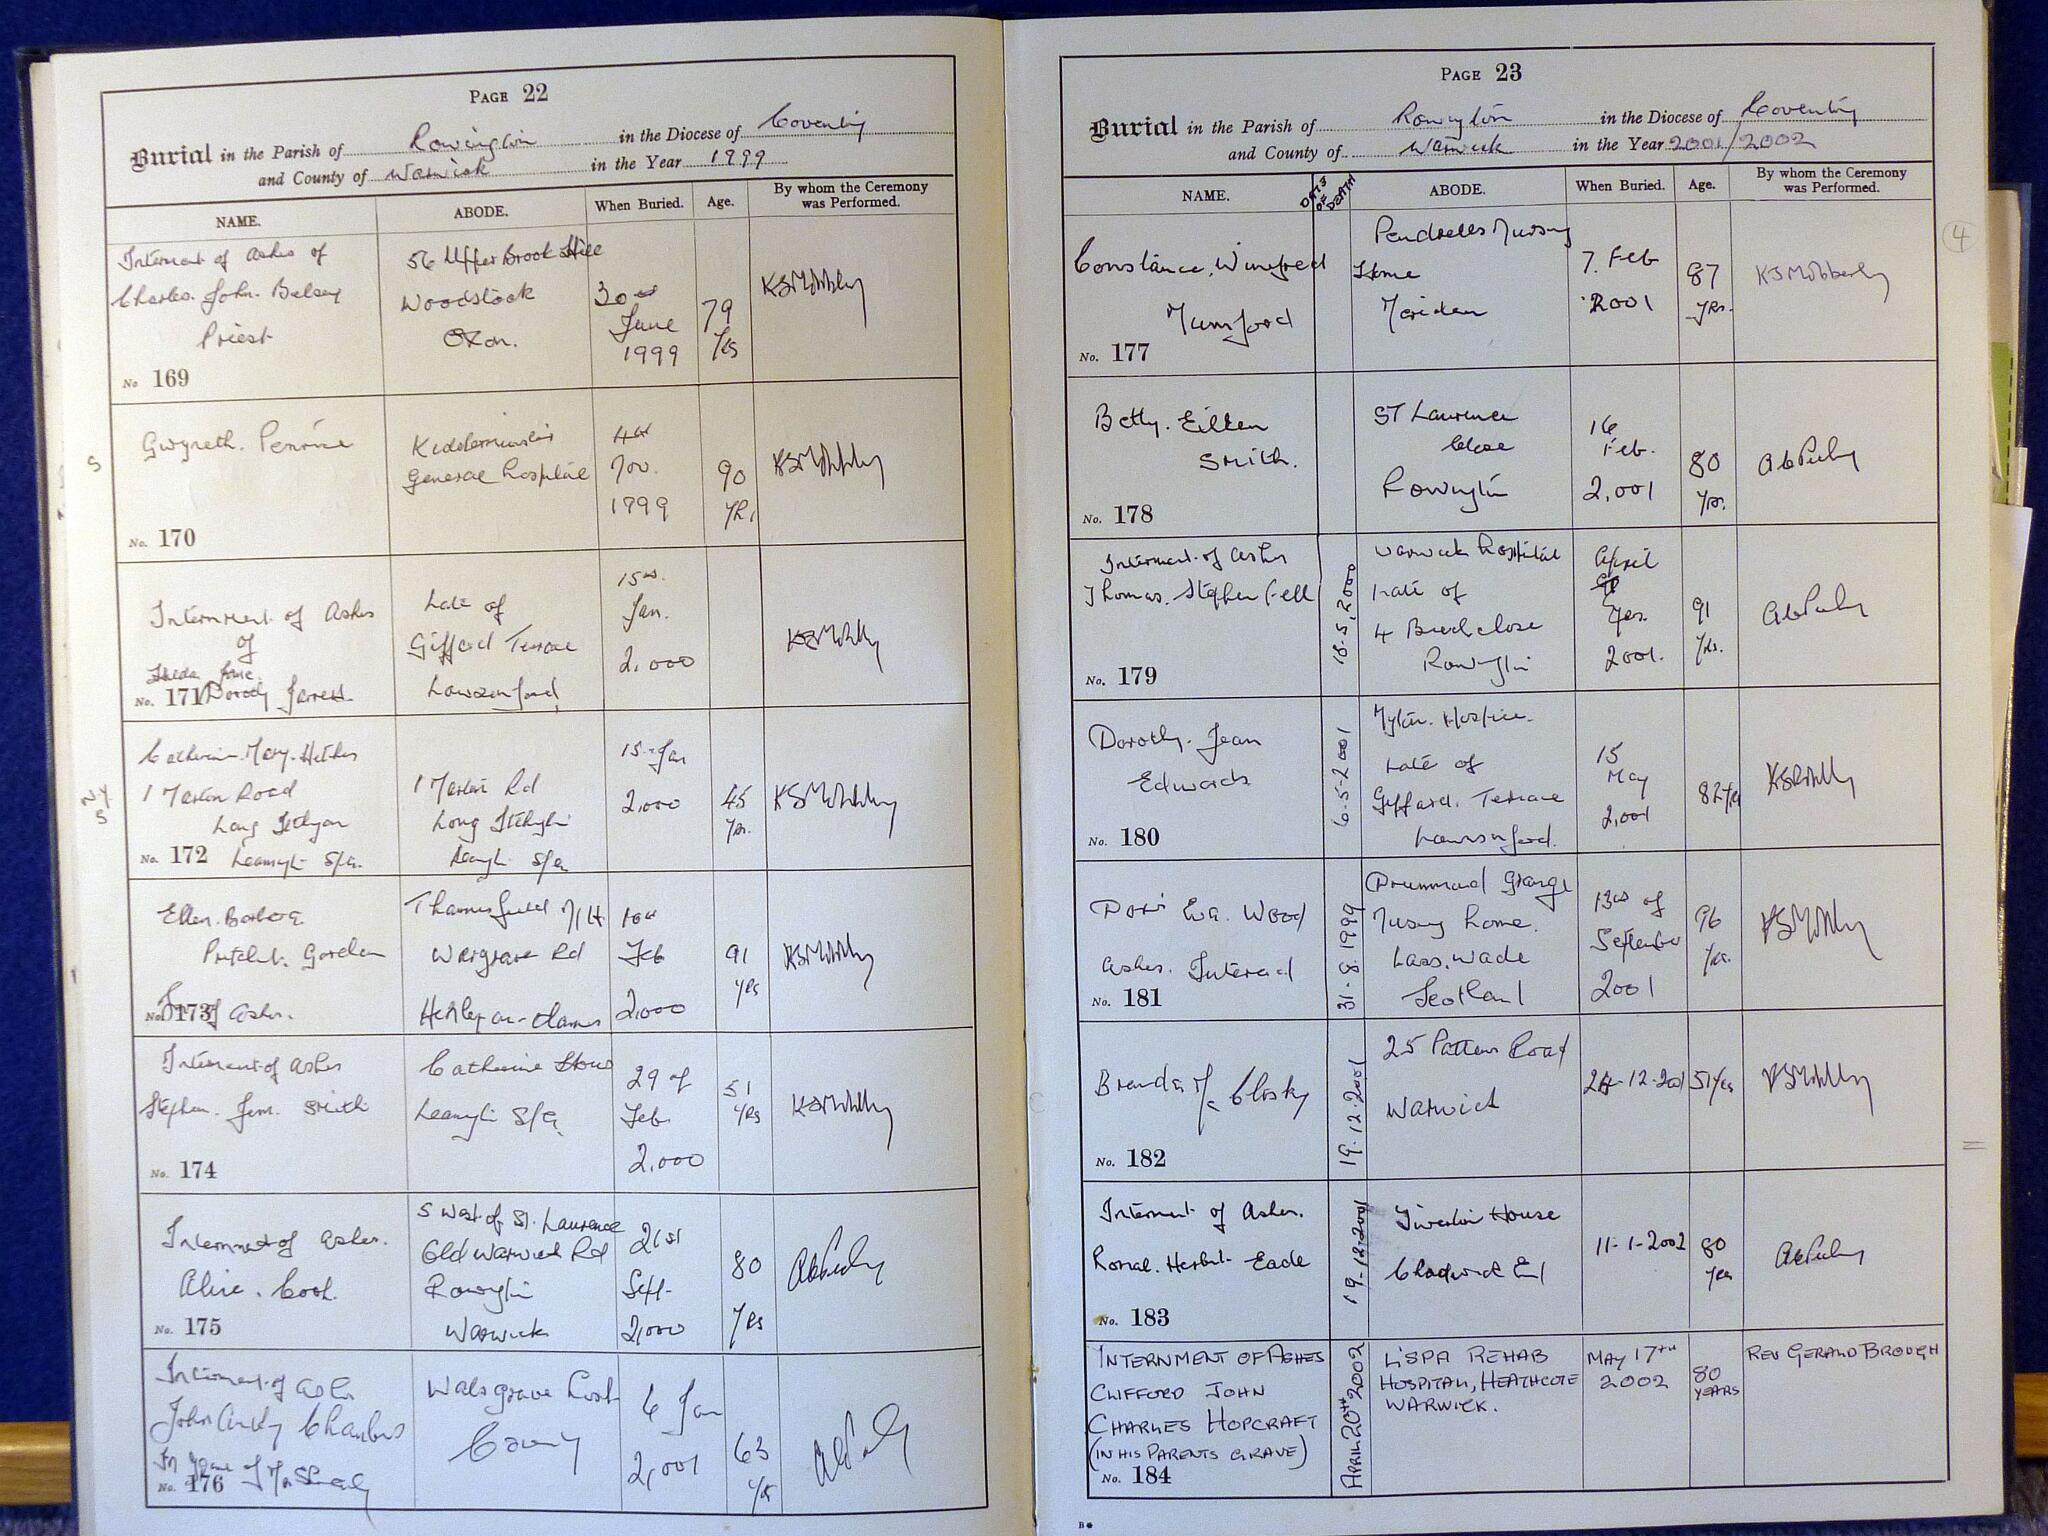 PAGE 22
Burial in the Parish of Rowington in the Diocese of Coventry
and County of Warwick in the Year 1999
NAME. ABODE. When Buried. Age. By whom the Ceremony was Performed.
Interment of Ashes of
Charles. John. Belsey
Priest
No 169
56 Upper Brook Hill
Woodstock
Oxon.
30th
June
1999
79
Yrs
KSMobberly
S
Gwyneth. Penrice
No. 170
Kidderminster
General Hospital
4th
Nov.
1999
90
yrs
KSMobberly
Internment of Ashes
of
Jane.
No. 171 Dorothy Jarrett
Late of
Gifford Terrace
Lowsonford
15th
Jan.
2,000
KSMobberly
Catherine Mary
1 Marton Road
Long Itchington
No. 172 Leamington Spa.
1 Marton Rd
Long Itchington
Leamington Spa
15th Jan
2,000
45
yrs.
KSMobberly
Ellen. Barbara
Gordon
No. 173 of Ashes.
Thamesfield N/H
Wargrave Rd
Henley on Thames
10th
Feb
2,000
91
yrs
KSMobberly
Interment of Ashes
Stephen. Smith
No. 174
Catherine House
Leamington Spa
29 of
Feb
2,000
51
yrs
KSMobberly
Internment of Ashes.
Alice. Cook.
No. 175
5 West of St. Laurence
Old Warwick Rd
Rowington
Warwick
21st
Sept.
2,000
80
yrs
Interment of Ashes
John Chambers
of
No. 176
Walsgrave Hosp
Coventry
6 Jan
2,001
63
yrs
PAGE 23
Burial in the Parish of Rowington in the Diocese of Coventry
and County of Warwick in the Year 2001/2002
NAME. DATE OF DEATH ABODE. When Buried. Age. By whom the Ceremony was Performed.
4
Constance. Winifred
Mumford
No. 177
Pendrells Nursing
Home
Meriden
7. Feb
2001
87
yrs.
KSMobberly
Betty. Eileen
Smith.
No. 178
St Laurence
Close
Rowington
16
Feb.
2,001
80
yrs.
Interment of Ashes
Thomas. Stephen Fell
No. 179
18.5.2000
Warwick Hospital
Late of
4 Birch close
Rowington
April
2001.
91
yrs.
Dorothy. Jean
Edwards
No. 180
6-5-2001
Myton. Hospice.
Late of
Giffard. Terrace
Lowsonford.
15
May
2,001
82 yrs
KSMobberly
Doris Eva. Wood
Ashes. Interred
No. 181
31-8-1999
Drummond Grange
Nursing home.
Lasswade
Scotland
13th of
September
2001
96
yrs.
KSMobberly
Brenda Mc Closky
No. 182
19.12.2001
25 Pattens Road
Warwick
24-12-2001
51 yrs
KSMobberly
Interment of Ashes.
Ronal. Herbert Eade
No. 183
19-12-2001
Tiverton House
Chadwick End
11-1-2002
80
yrs
INTERNMENT OF ASHES
CLIFFORD JOHN
CHARLES HOPCRAFT
(IN HIS PARENTS GRAVE)
No. 184
APRIL 20TH 2002
LISPA REHAB
HOSPITAL, HEATHCOTE
WARWICK.
MAY 17TH
2002
80
YEARS
REV GERALD BROUGH
B*